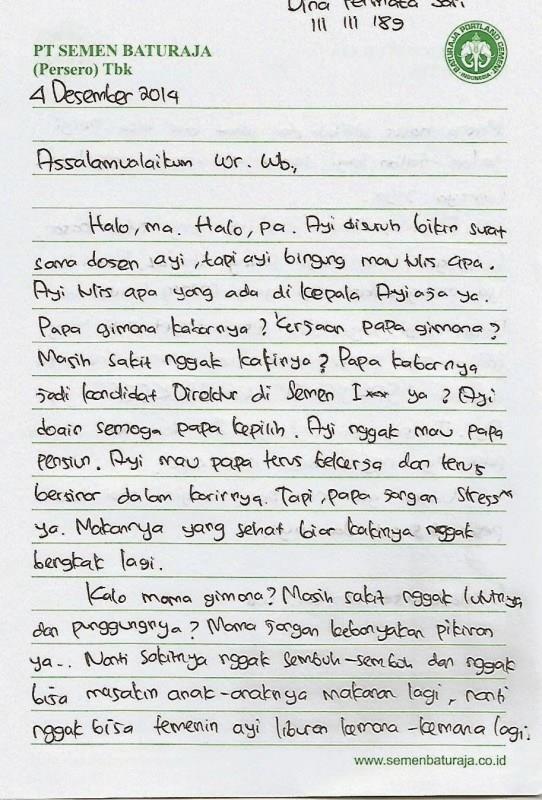 Dina Permata Sari
111 111 189
PT SEMEN BATURAJA
(Persero) Tbk
BATURAJA PORTLAND CEMENT
INDONESIA
4 Desember 2014
Assalamualaikum Wr. Wb.,
Halo, ma. Halo, pa. Ayi disuruh bikin surat
sama dosen ayi, tapi ayi bingung mau tulis apa.
Ayi tulis apa yang ada di kepala Ayi aja ya.
Papa gimana kabarnya? Kerjaan papa gimana?
Masih sakit nggak kakinya? Papa kabarnya
jadi kandidat Direktur di Semen I*** ya? Ayi
doain semoga papa kepilih. Ayi nggak mau papa
pensiun. Ayi mau papa terus bekerja dan terus
bersinar dalam karirnya. Tapi, papa jangan stress
ya. Makannya yang sehat biar kakinya nggak
bengkak lagi.
Kalo mama gimana? Masih sakit nggak lututnya
dan punggungnya? Mama jangan kebanyakan pikiran
ya.. Nanti sakitnya nggak sembuh-sembuh dan nggak
bisa masakin anak-anaknya makanan lagi, nanti
nggak bisa temenin ayi liburan kemana-kemana lagi.
www.semenbaturaja.co.id